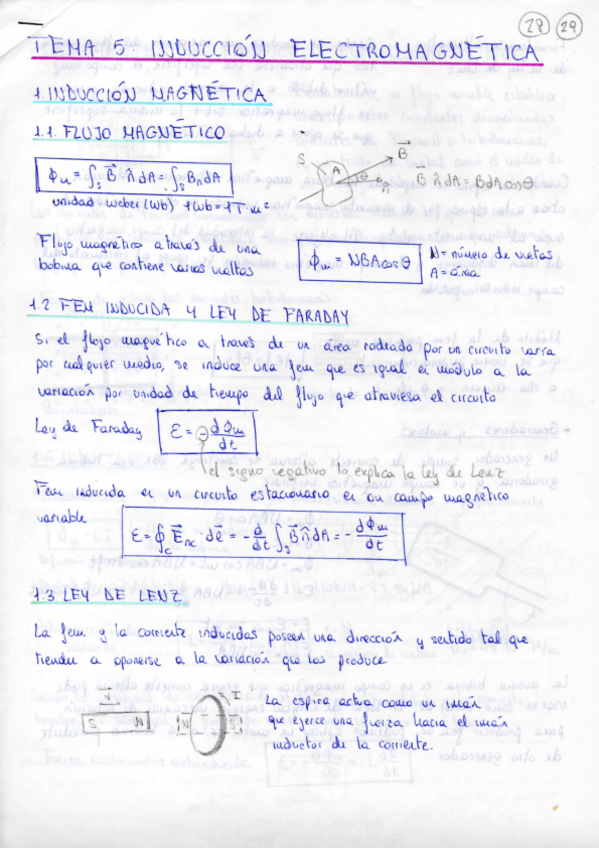 28 29
TEMA 5: INDUCCIÓN ELECTROMAGNÉTICA
1. INDUCCIÓN MAGNÉTICA
1.1. FLUJO MAGNÉTICO
ϕm = ∫s B⃗ n̂ dA = ∫s Bn dA
S A θ n̂ B⃗
B⃗ n̂ dA = B dA cos θ
unidad weber (Wb) 1Wb = 1T·m²
Flujo magnético a través de una
bobina que contiene varias vueltas
ϕm = NBA cos θ
N = número de vueltas
A = área
1.2 FEM INDUCIDA Y LEY DE FARADAY
Si el flujo magnético a través de un área rodeada por un circuito varía
por cualquier medio, se induce una fem que es igual en módulo a la
variación por unidad de tiempo del flujo que atraviesa el circuito
Ley de Faraday ε = - dϕm/dt
el signo negativo lo explica la ley de Lenz
Fem inducida en un circuito estacionario en un campo magnético
variable
ε = ∮c E⃗nc · dℓ⃗ = - d/dt ∫s B⃗ n̂ dA = - dϕm/dt
1.3 LEY DE LENZ
La fem y la corriente inducidas poseen una dirección y sentido tal que
tienden a oponerse a la variación que las produce
S N N S I
La espira actúa como un imán
que ejerce una fuerza hacia el imán
inductor de la corriente.